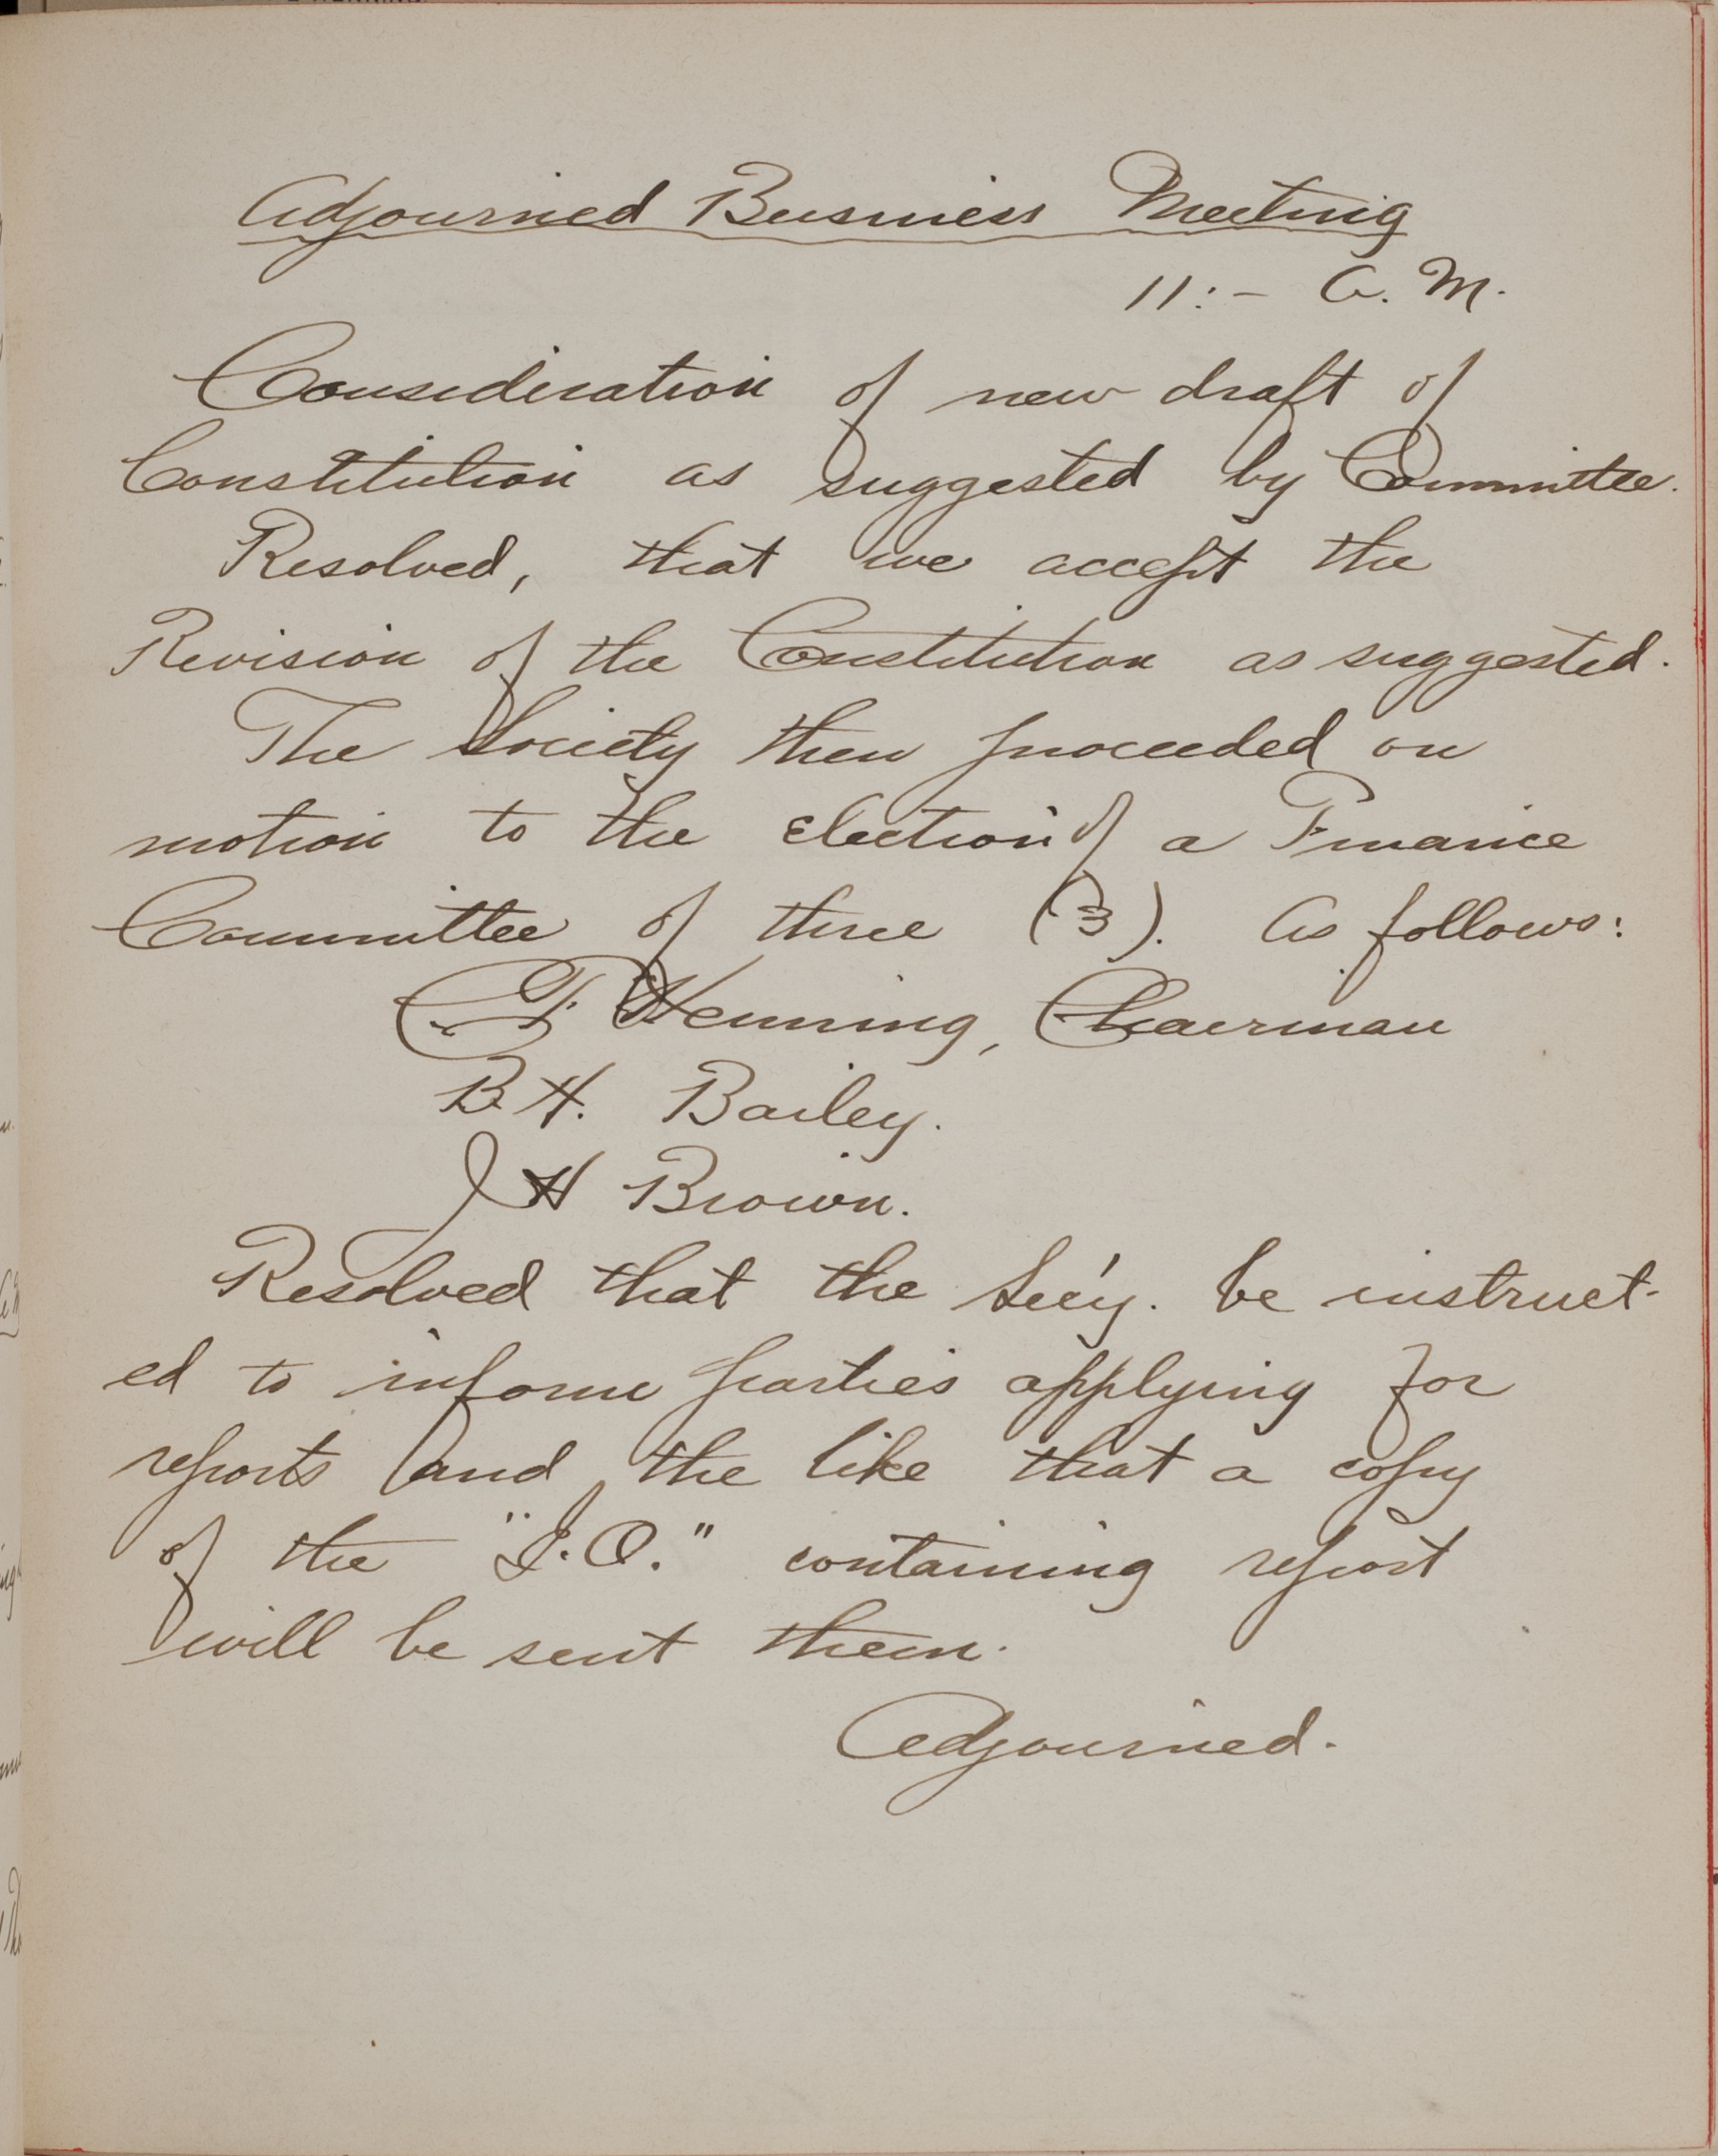 Adjourned Business Meeting
11:- A. M.
Consideration of new draft of
Constitution as suggested by Committee.
Resolved, that we accept the
Revision of the Constitution as suggested.
The Society then proceeded on
motion to the election of a Finance
Committee of three (3). As follows:
C F Henning, Chairman
B. H. Bailey.
J H Brown.
Resolved that the Sec'y. be instruct-
ed to inform parties applying for
reports and the like that a copy
of the "I. O." containing report
will be sent them.
Adjourned.